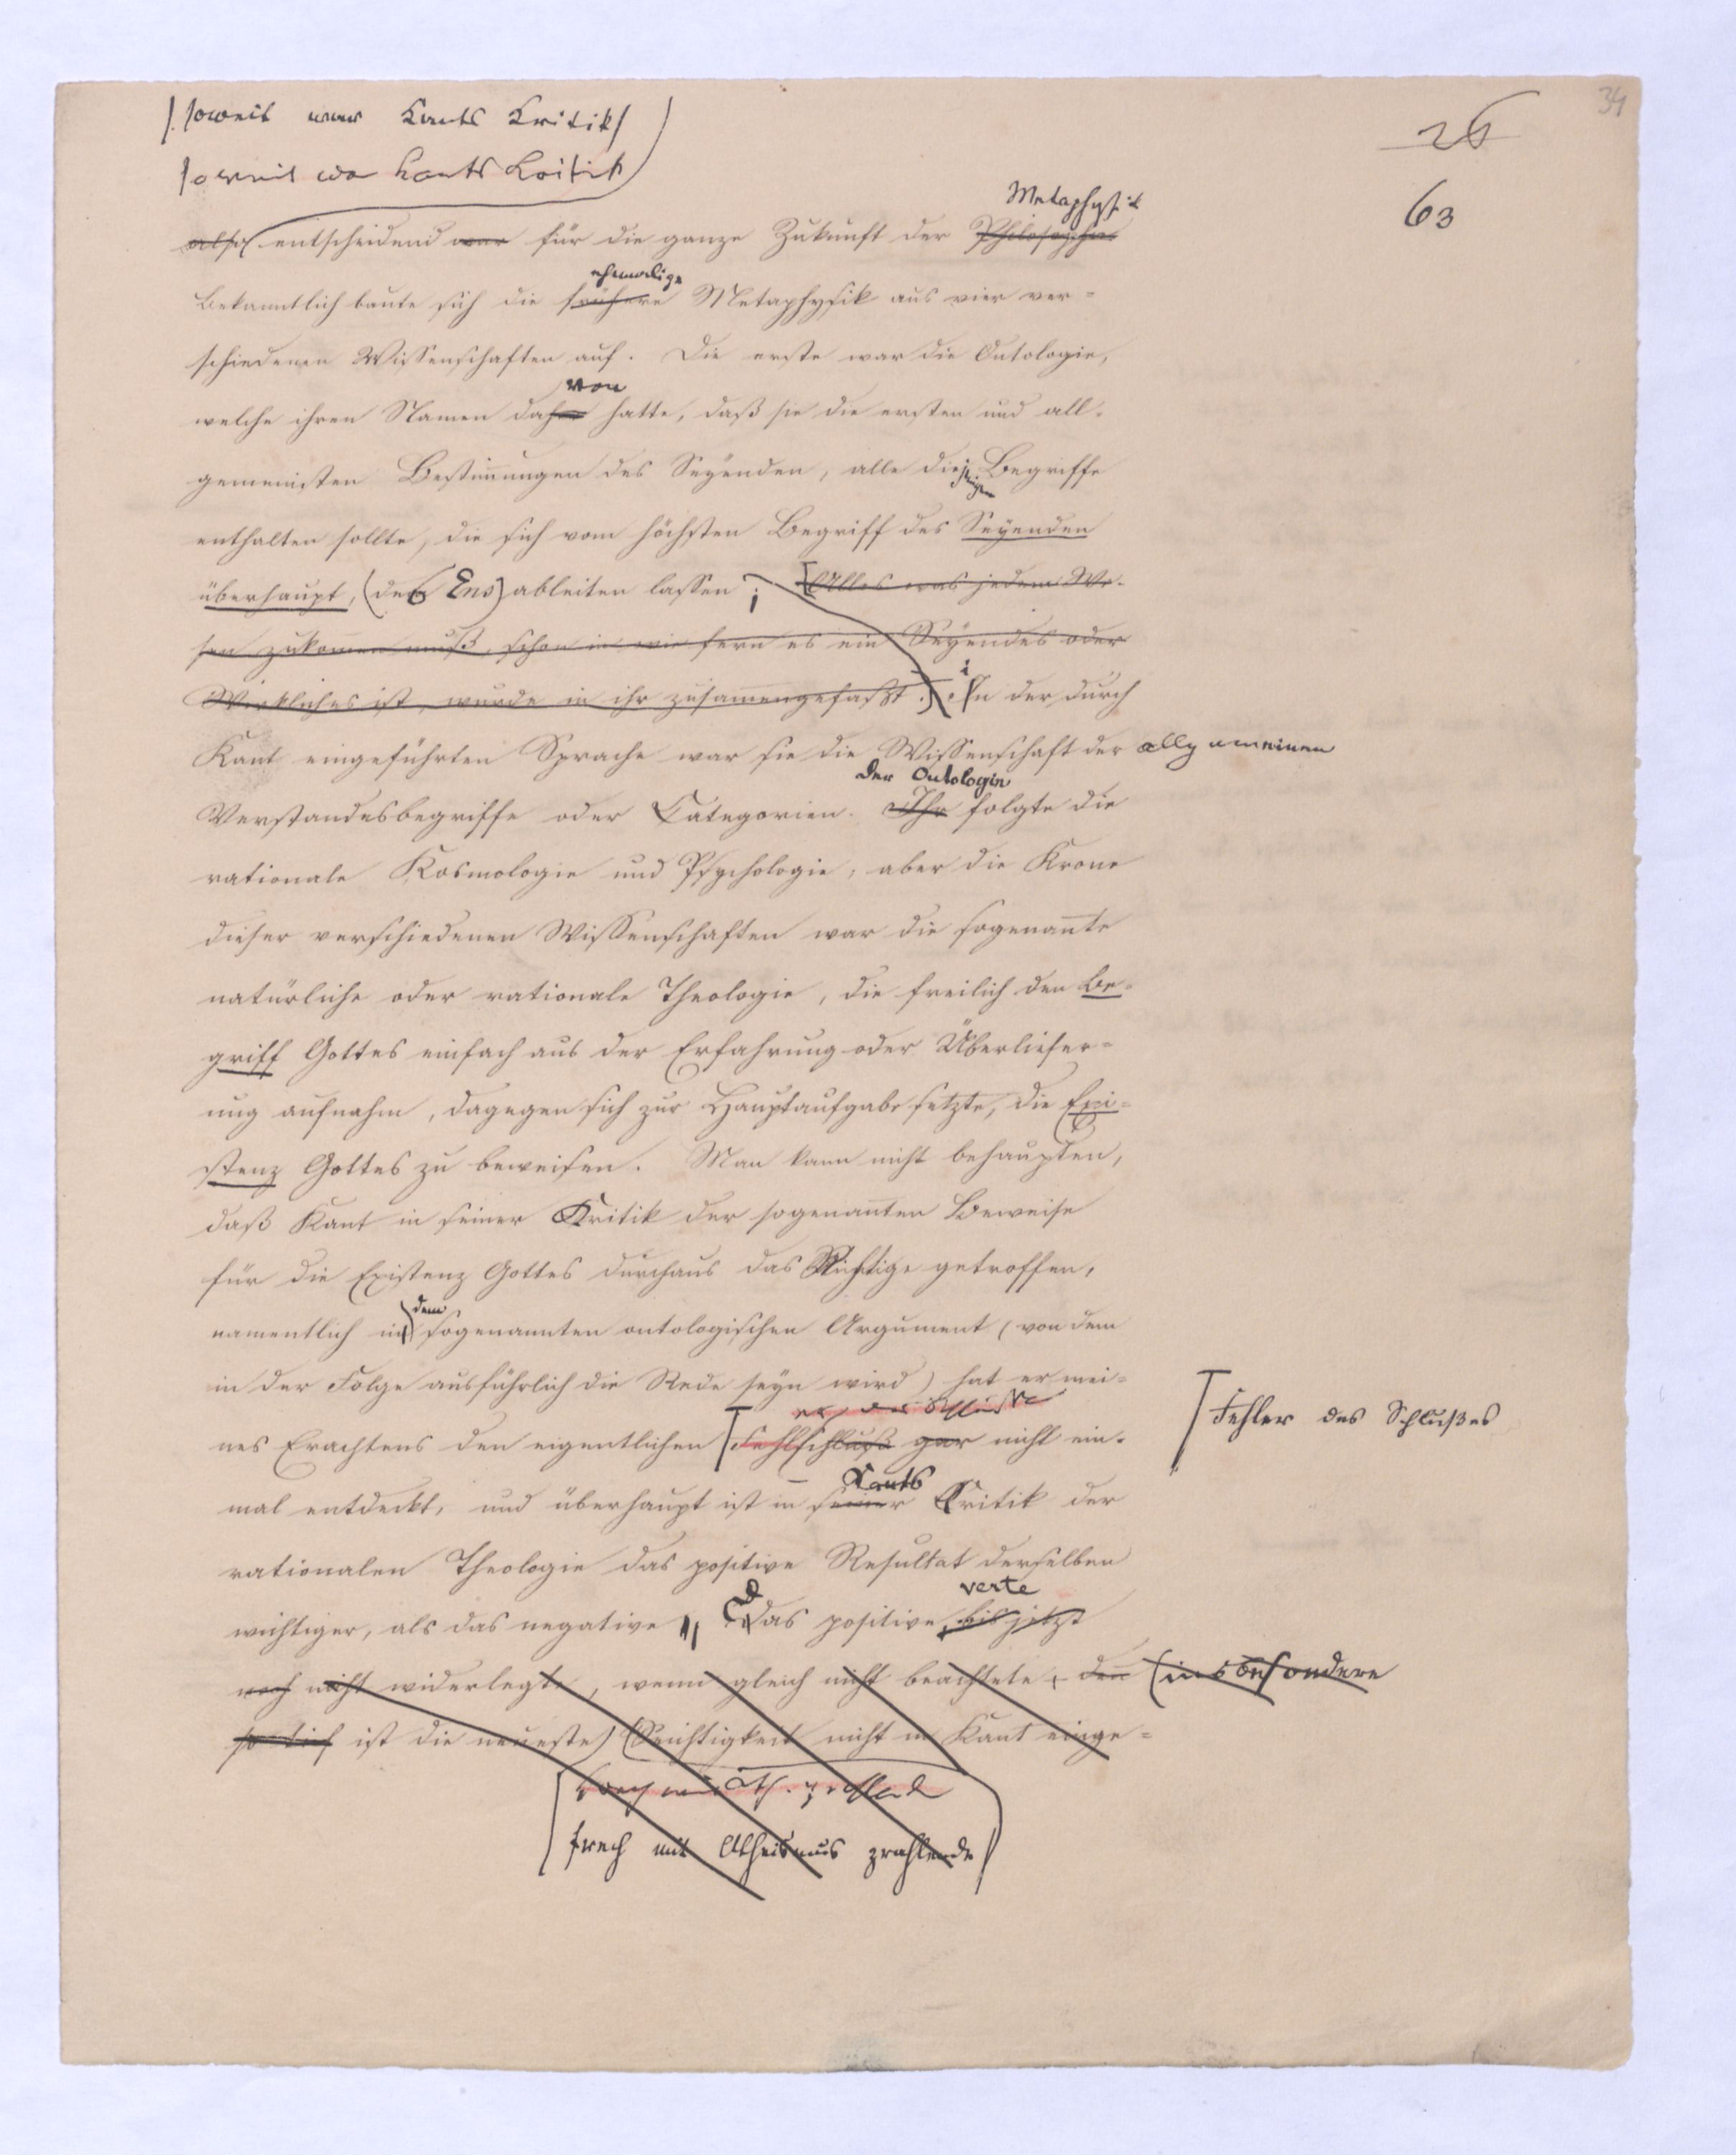 34
26
63
soweit war Kants Kritik
soweit war Kants Kritik
also entscheidend war für die ganze Zukunft der Philosophie
Metaphysik
Bekanntlich baute sich die frühere Metaphysik aus vier ver-
ehemalige
schiedenen Wissenschaften auf. Die erste war die Ontologie,
welche ihren Namen daher hatte, daß sie die ersten und all-
von
gemeinsten Bestim̄ungen des Seyenden, alle diejenigen Begriffe
enthalten sollte, die sich vom höchsten Begriff des Seyenden
überhaupt, (des Ens) ableiten lassen; Alles was jedem We-
sen zukom̄en muß, schon in wie fern es ein Seyendes oder
Wirkliches ist, wurde in ihr zusam̄engefaßt. in der durch
Kant eingeführten Sprache war sie die Wissenschaft der allgemeinen
Verstandesbegriffe oder Categorien. Ihr folgte die
der Ontologie
rationale Kosmologie und Psychologie, aber die Krone
dieser verschiedenen Wissenschaften war die sogenan̄te
natürliche oder rationale Theologie, die freilich den Be-
griff Gottes einfach aus der Erfahrung oder Überliefer-
ung aufnahm, dagegen sich zur Hauptaufgabe setzte, die Exi-
stenz Gottes zu beweisen. Man kann nicht behaupten,
daß Kant in seiner Kritik der sogenan̄ten Beweise
für die Existenz Gottes durchaus das Richtige getroffen,
namentlich in dem sogenannten ontologischen Argument (von dem
in der Folge ausführlich die Rede seyn wird) hat er mei-
nes Erachtens den eigentlichen Fehlschluß gar nicht ein-
Fehler des Schlußes
mal entdeckt, und überhaupt ist in seiner Kritik der
Kants
rationalen Theologie das positive Resultat derselben
wichtiger, als das negative. Das positive, bis jetzt
verte
noch nicht widerlegte, wenn gleich nicht beachtete, den̄ (insbesondere
so tief ist die neueste) Seichtigkeit nicht in Kant einge-
frech mit Atheismus prahlende